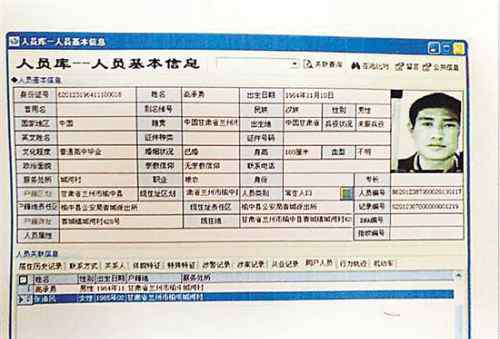 人员库--人员基本信息
人员库--人员基本信息
关联查询 在逃比对 留言 公共信息
人员基本信息
身份证号 姓名 高承勇 出生日期 1964年11月10日
曾用名 别名绰号 民族 汉族 性别 男性
国家地区 中国 籍贯 中国甘肃省兰州市 出生地 中国甘肃省 兵役状况 未服兵役
英文姓名 证件种类 证件号码
文化程度 普通高中毕业 婚姻状况 已婚 身高 血型 不明
政治面貌 宗教信仰 无宗教信仰 联系电话
服务处所 城河村 职业
户籍区划 甘肃省兰州市榆中县 现住址区划 肃省兰州市榆中县 人员类别 常住人口 人员编号
户籍地责任区 榆中县公安局青城派出所 现住址责任区 榆中县公安局青城派出所 记录编号
户籍地址 青城镇城河村 现住地 甘肃省兰州市榆中县青城镇城河村 DNA编号
人员属性 指纹编号
人员关联信息
居住历史记录 联系方式 关系人 体貌特征 特殊特征 涉警记录 涉案记录 从业记录 同户人员 行为轨迹 机动车
姓名 性别 出生日期 户籍地 服务处所
高承勇 男性 1964年11 甘肃省兰州市榆 城河村
女性 甘肃省兰州市榆 城河村